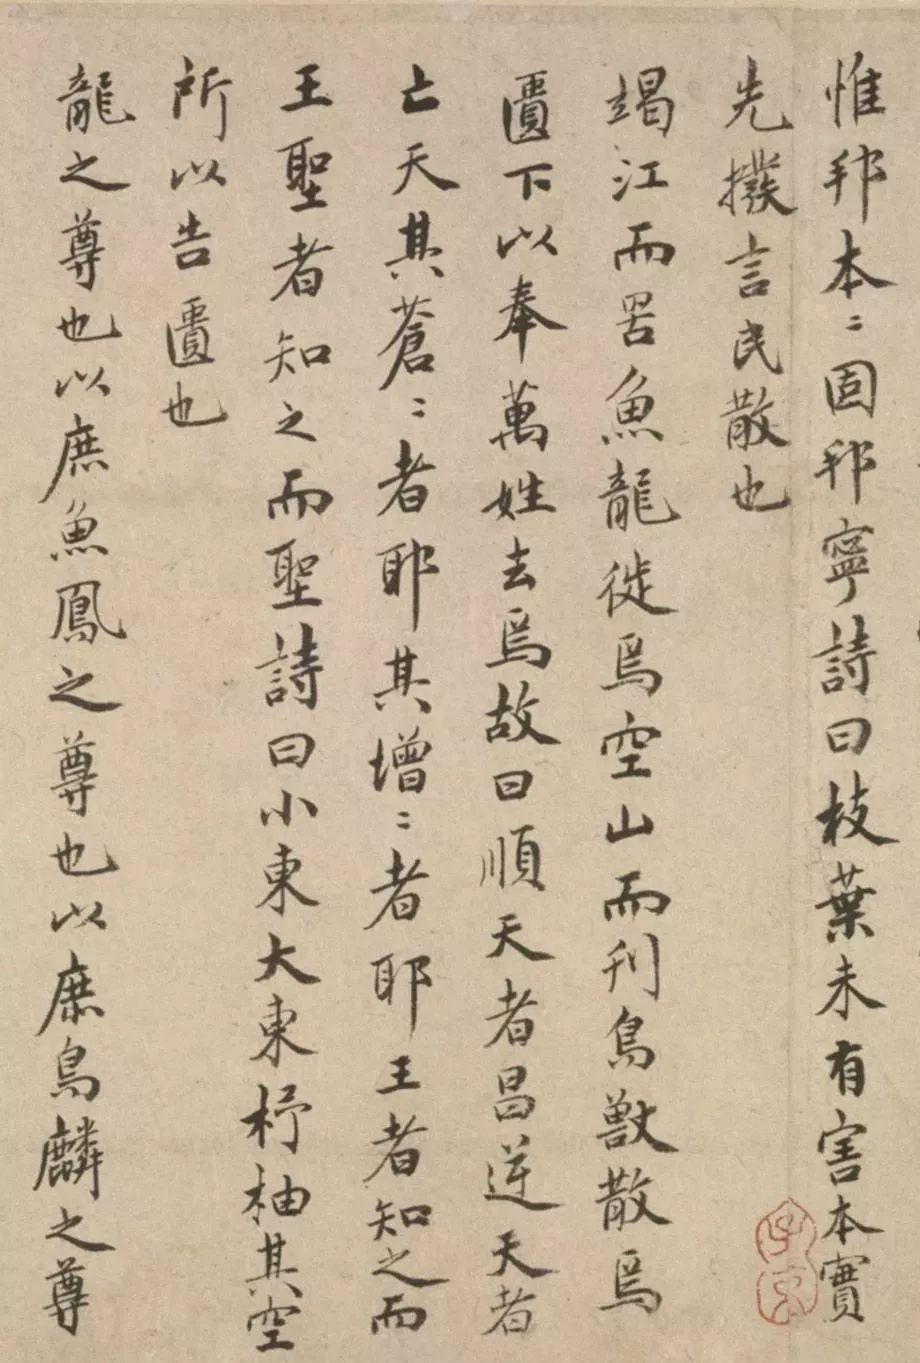 惟邦本〻固邦寧詩曰枝葉未有害本實
先撥言民散也
竭江而罟魚龍徙焉空山而刊鳥獸散焉
匱下以奉萬姓去焉故曰順天者昌逆天者
亡天其蒼〻者耶其增〻者耶王者知之而
王聖者知之而聖詩曰小東大東杼柚其空
所以告匱也
龍之尊也以庶魚鳳之尊也以庶鳥麟之尊
子京